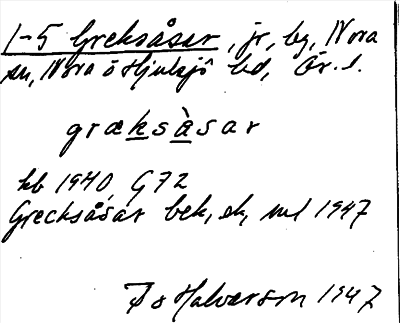 1-5 Greksåsar, jr, by, Nora
sn, Nora o Hjulsjö bd, Ör. l.
græksàsar
kb 1940, G72
Grecksåsar bek, ek, ml 1947
Halvarson 1947